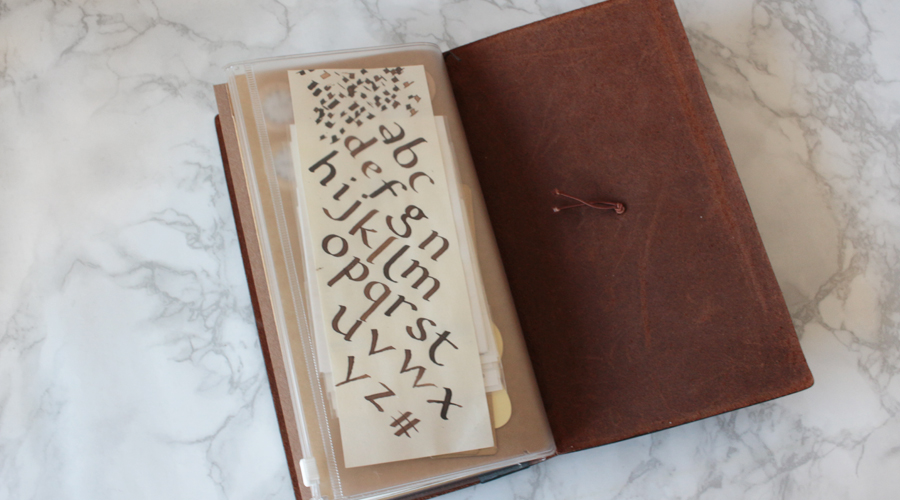 abc
defgn
hijkllm
opqrst
uvwx
yz#